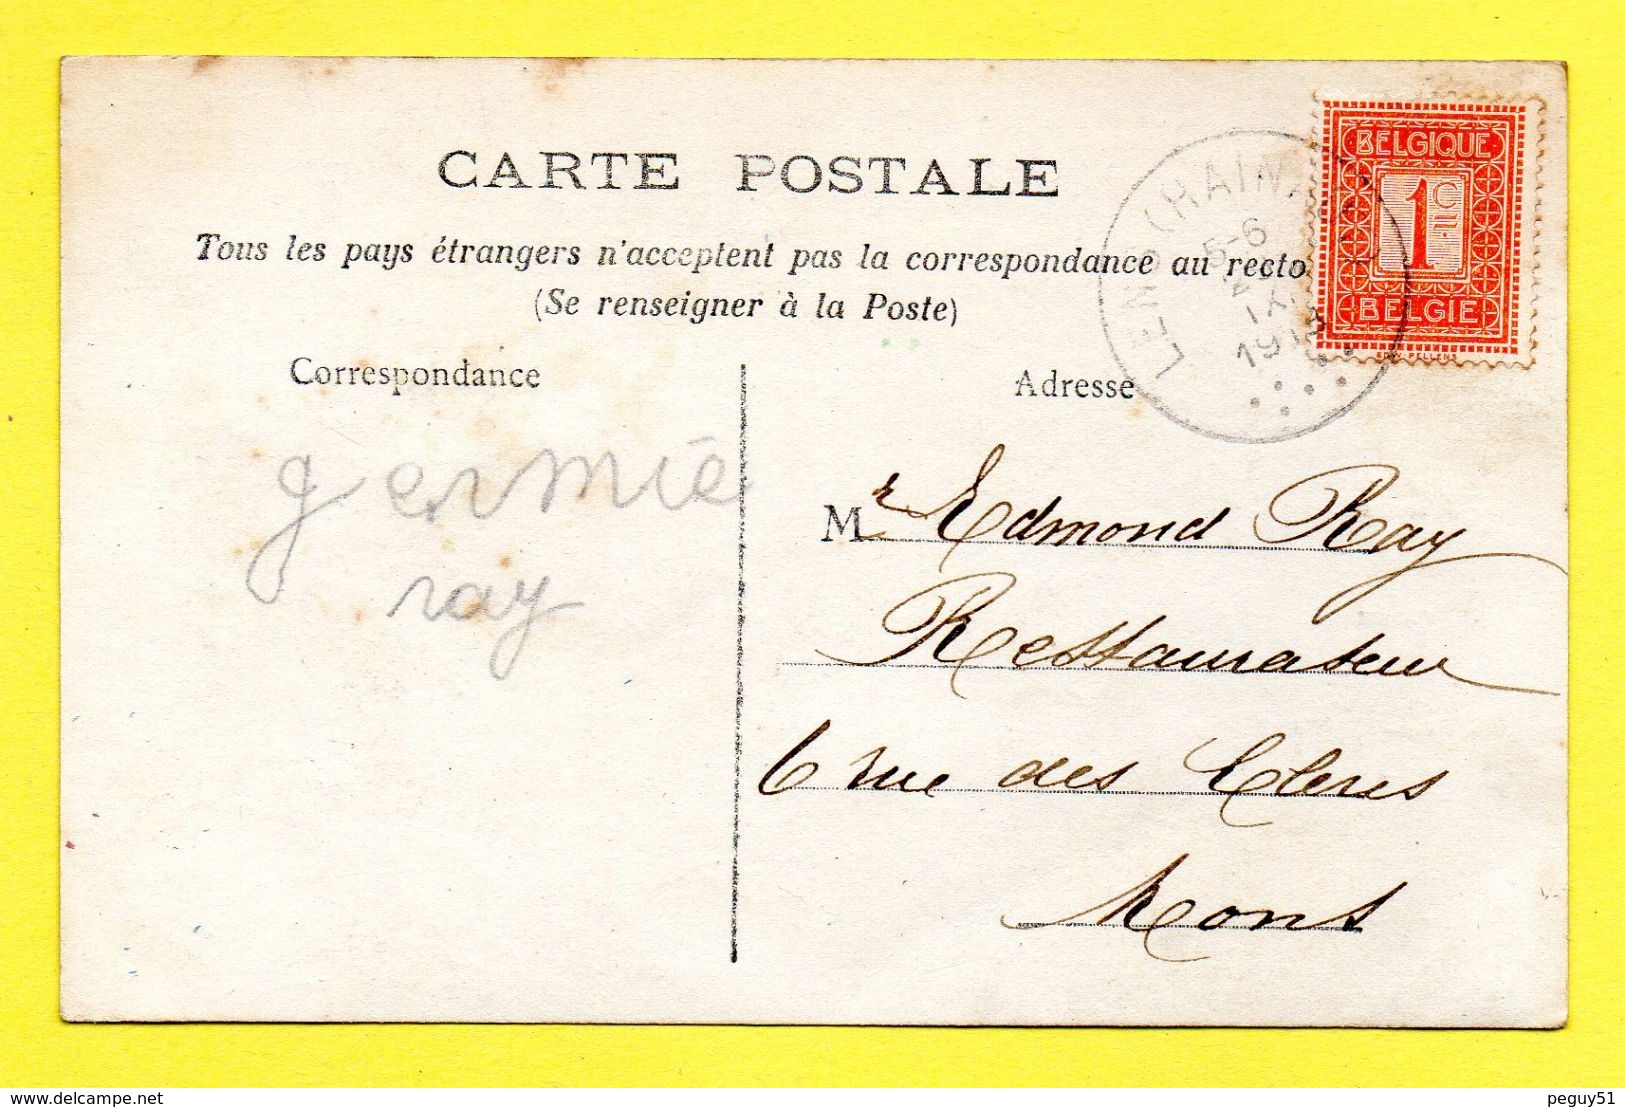 CARTE POSTALE
Tous les pays étrangers n'acceptent pas la correspondance au recto
(Se renseigner à la Poste)
Correspondance
Adresse
BELGIQUE
1 C
BELGIE
EDW. PELLENS
LENS (HAINAUT)
5-6
IX
germie
ray
Mr Edmond Ray
Restaurateur
6 rue des Clercs
Mons
delcampe.net
peguy51